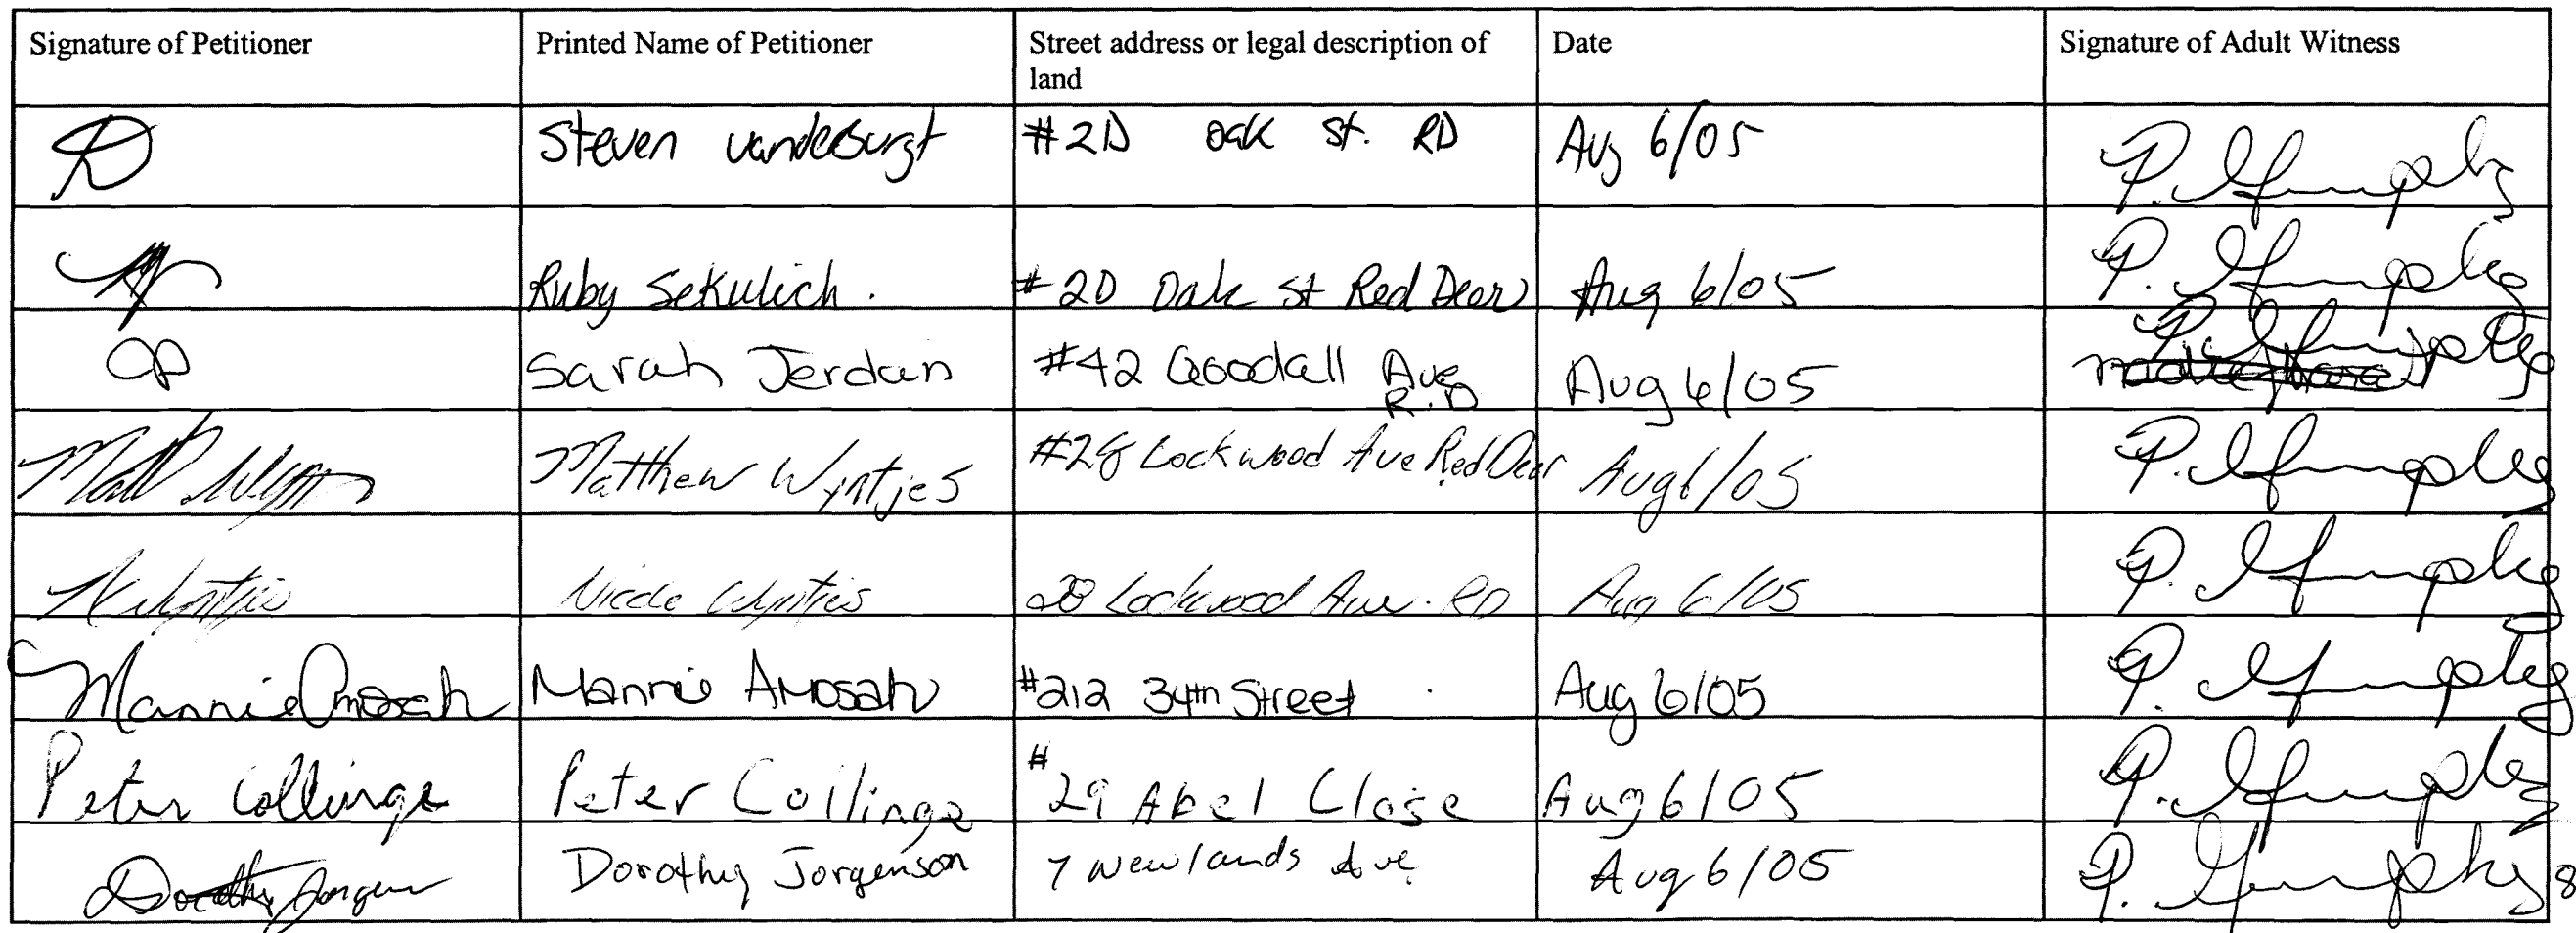 Signature of Petitioner Printed Name of Petitioner Street address or legal description of land Date Signature of Adult Witness
Steven vanderburgt #2D oak st. RD Aug 6/05 P.
Ruby Sekulich. #2D Oak st Red Deer Aug 6/05 P.
Sarah Jerdan #42 Goodall Ave R.D Aug 6/05 P.
Matt Matthew Wyntjes #28 Lockwood Ave Red Deer Aug 6/05 P.
N Wyntjes Nicole Wyntjes 28 Lockwood Ave. RD Aug 6/05 P.
Mannie Amosah Mannie Amosah #212 34th Street Aug 6/05 P.
Peter Collinge Peter Collinge #29 Abel Close Aug 6/05 P.
Dorothy Jorgen Dorothy Jorgenson 7 Newlands Ave Aug 6/05 P.
8